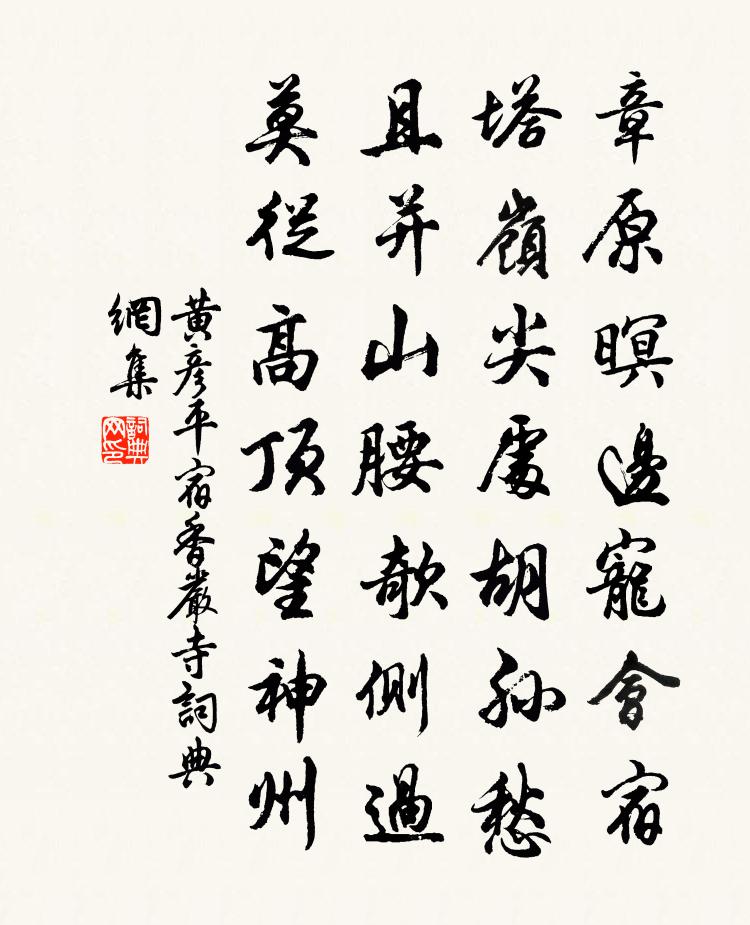 章原暝邊寵會宿
塔嶺尖處胡孫愁
且并山腰欹側過
莫從高頂望神州
黄彦平宿香嚴寺詞典
網集
詞典
网印